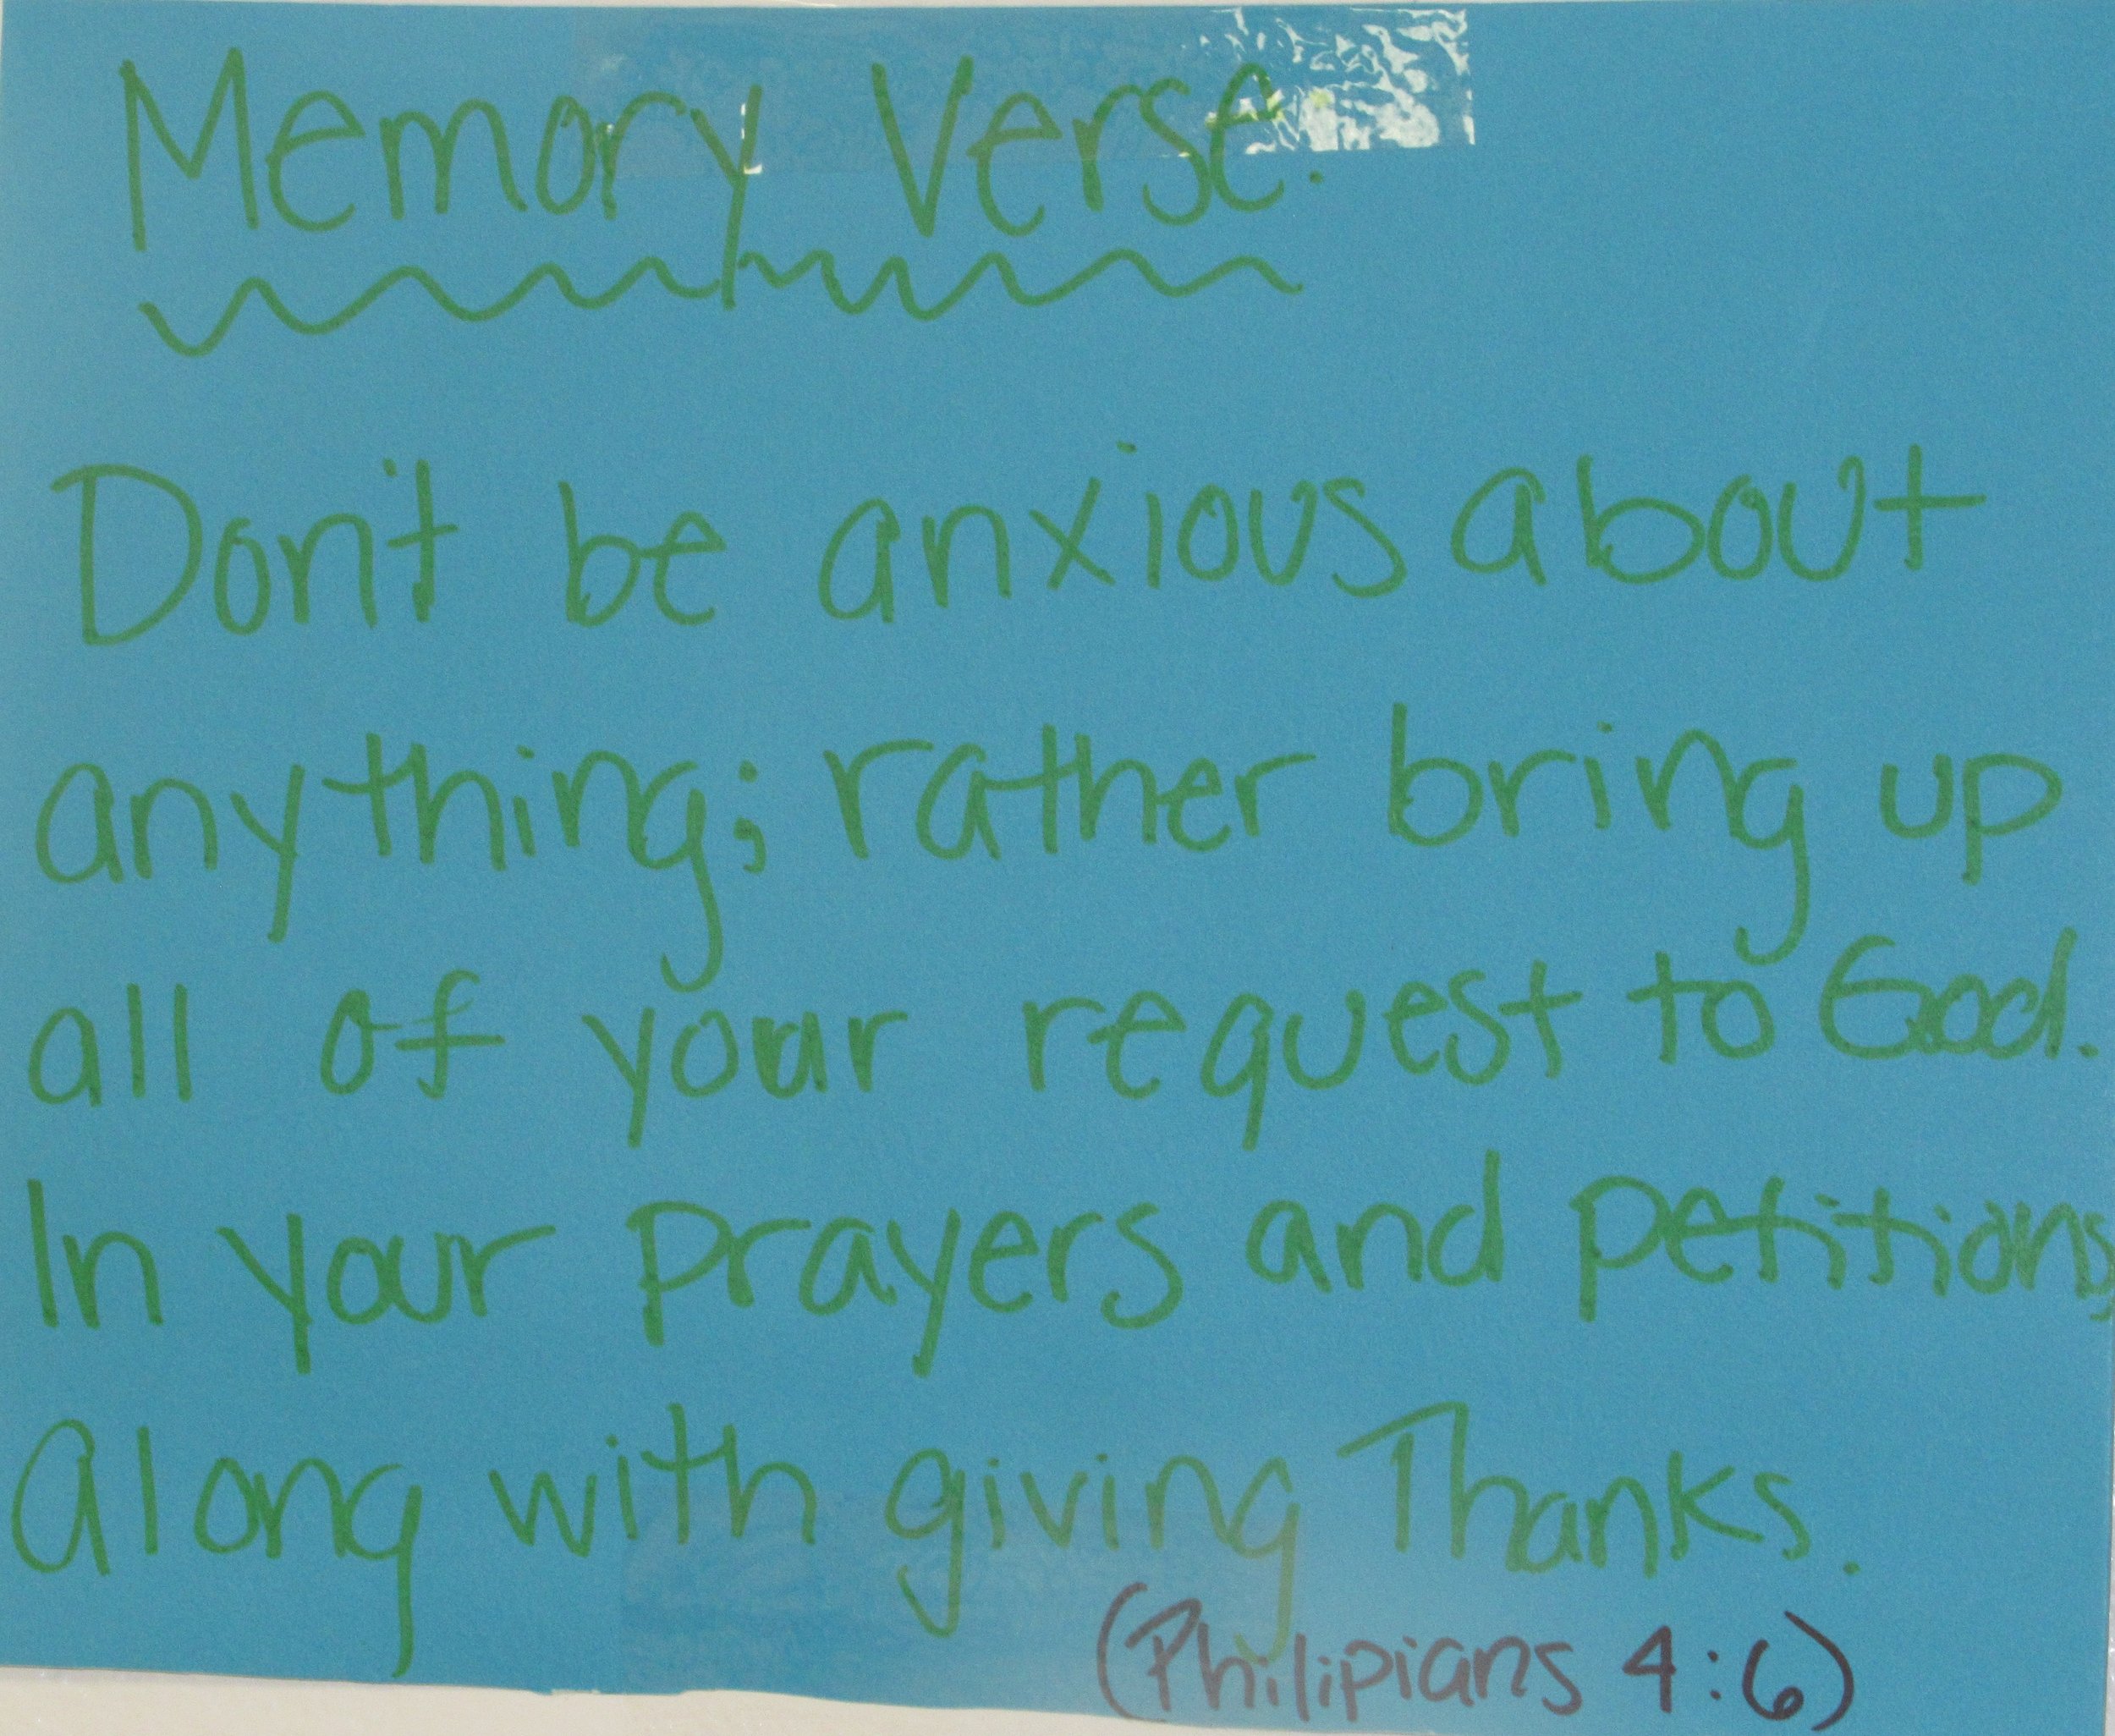 Memory Verse.
Don't be anxious about
anything; rather bring up
all of your request to God.
In your prayers and petitions
Along with giving Thanks.
(Philipians 4:6)